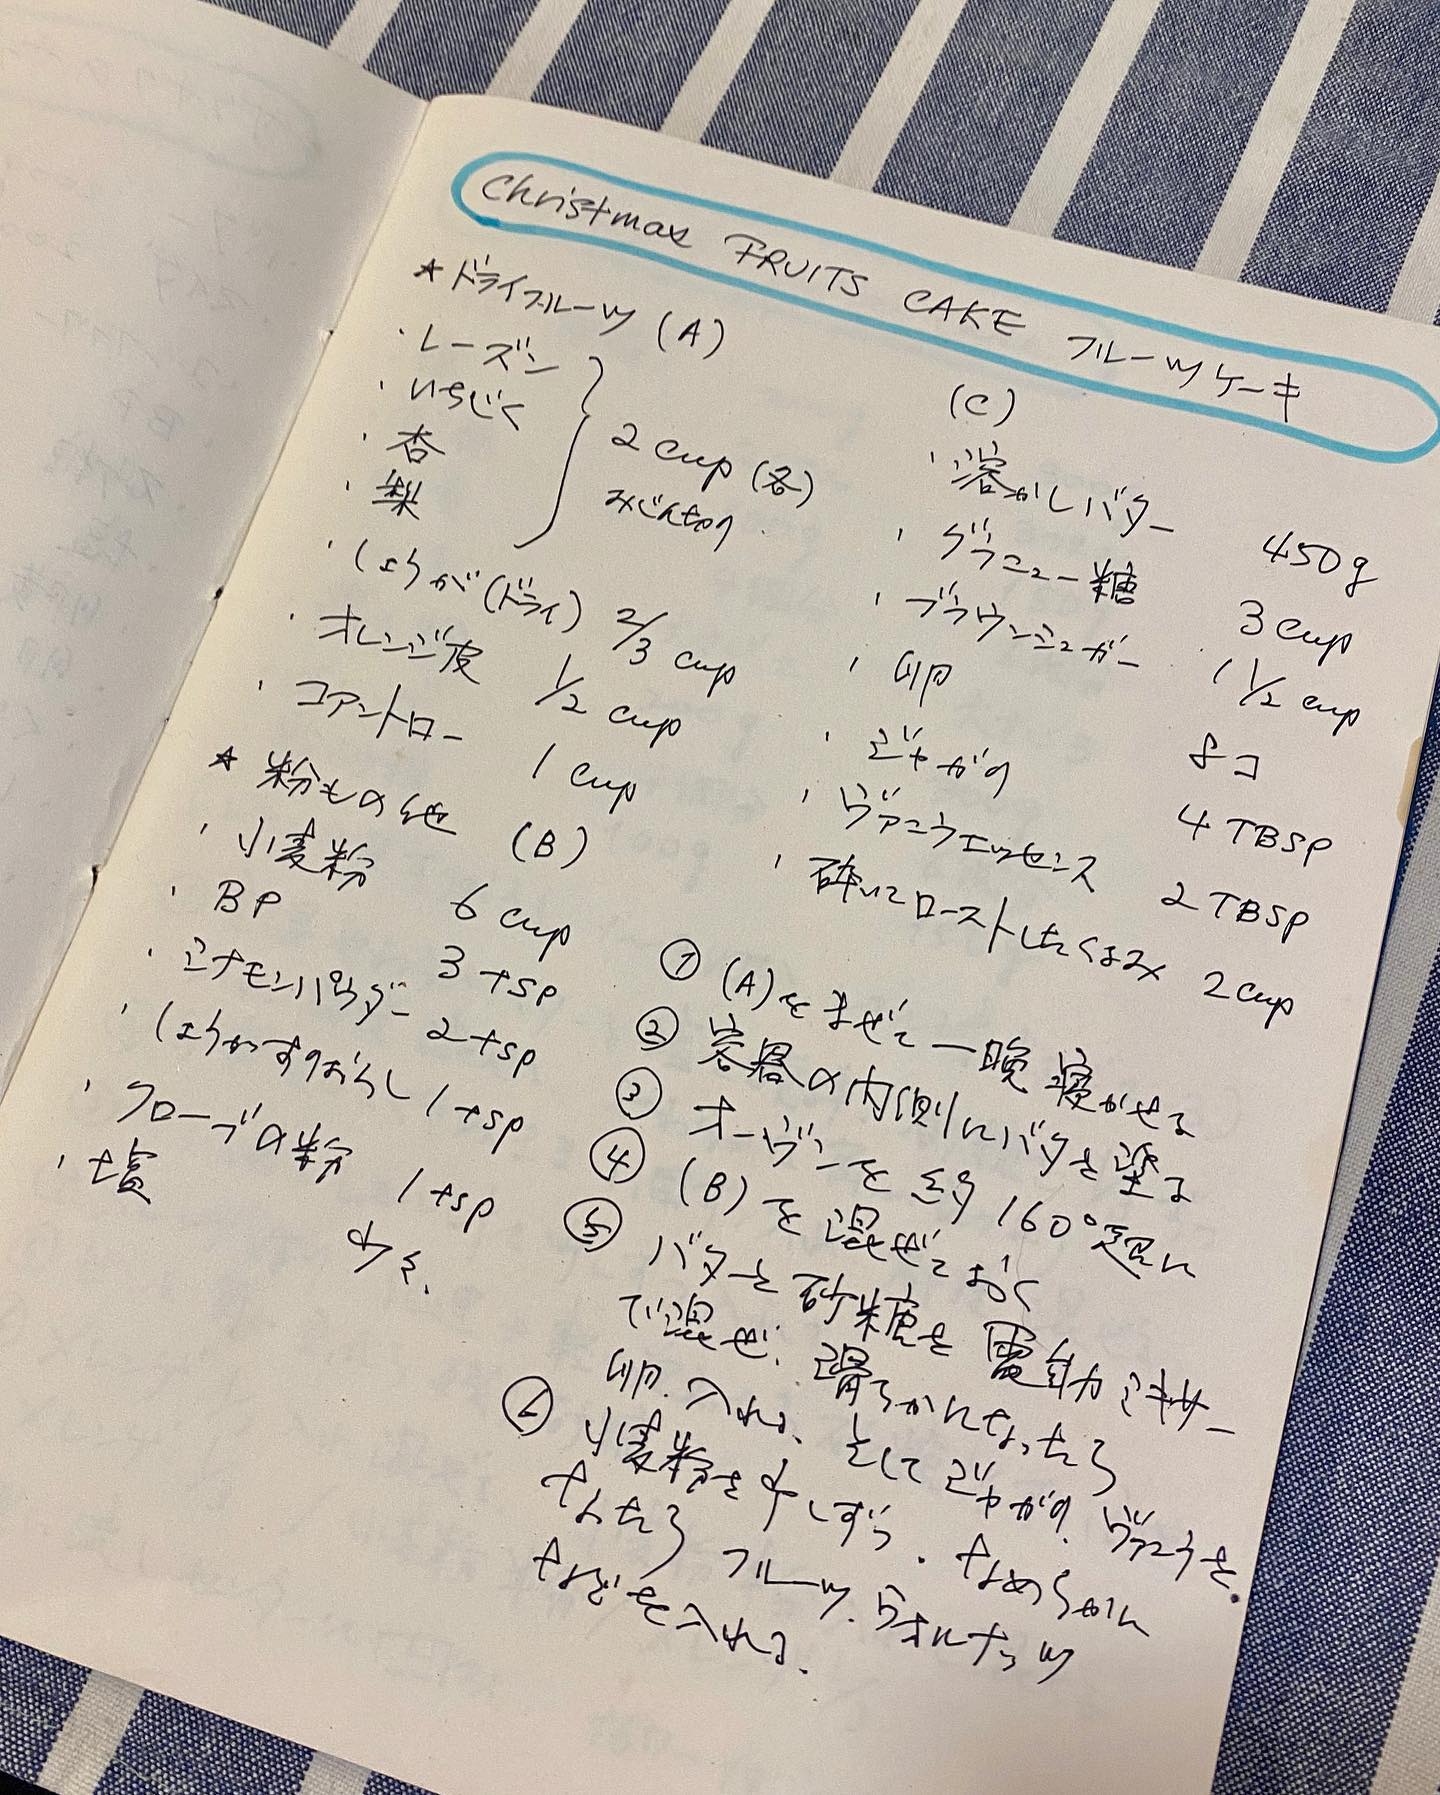 Christmas FRUITS CAKE フルーツケーキ
★ドライフルーツ (A)
・レーズン
・いちじく
・杏
・梨
2 cup (各)
みじん切り
・しょうが(ドライ) 2/3 cup
・オレンジ皮 1/2 cup
・コアントロー 1 cup
★粉もの他 (B)
・小麦粉 6 cup
・BP 3 tsp
・シナモンパウダー 2 tsp
・しょうがすりおろし 1 tsp
・クローブの粉 1 tsp
・塩 少々、
(C)
・溶かしバター 450g
・グラニュー糖 3 cup
・ブラウンシュガー 1 1/2 cup
・卵 8コ
・ジャガリ 4 TBSP
・ヴァニラエッセンス 2 TBSP
・砕いてローストしたくるみ 2 cup
① (A)をまぜて一晩寝かせる
② 容器の内側にバタを塗る
③ オーヴンを約160°に
④ (B)を混ぜておく
⑤ バターと砂糖を電動ミキサー
で混ぜ、滑らかになったら
卵、入れる、そしてジャガリ、ヴァニラを、
⑥ 小麦粉を少しずつ、なめらかに
なったらフルーツ、ウオルナッツ
などを入れる、